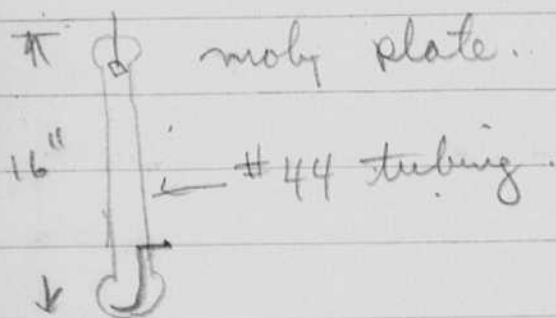 moly plate.
16"
#44 tubing.